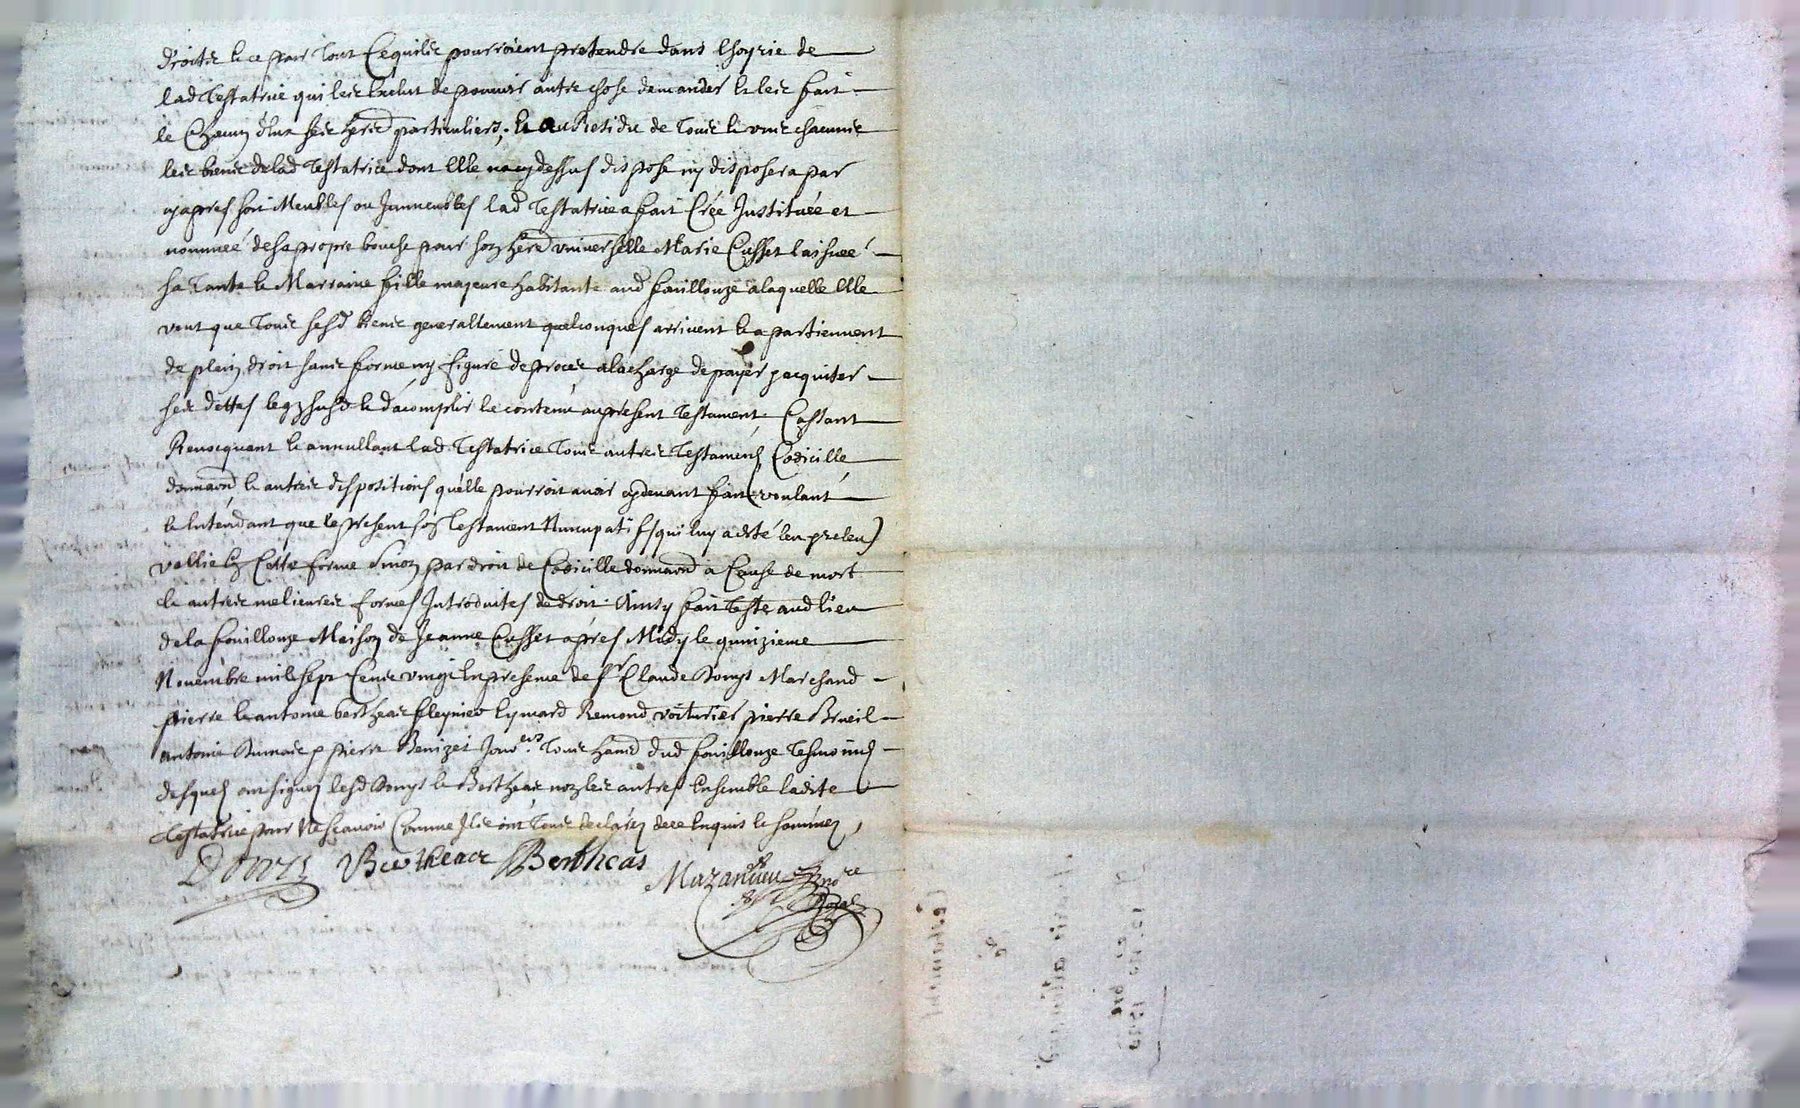 droits & ce pour tout ce quils pourroient pretendre dans lhoyrie de
lad Testatrice qui les exclut de pouvoir autre chose demander et les fait
le chacun deux ses hers particuliers, & au Residu de tous & uns chacuns
les biens de lad Testatrice dont elle na cy dessus dispose ny disposera par
cy apres soit Meubles ou Immeubles lad Testatrice a fait Créé Instituée et
nommeé de sa propre bouche pour son here universelle Marie Cusset laisnée
sa Tante & Marraine fille majeure habitante aud fouillouze a laquelle elle
veut que tous sesd biens generallement quelconques arrivent & apartiennent
de plein droit sans forme ny figure de proces a la charge de payer jacquiter
ses dettes legz susd & dacomplir le contenu au present Testament, Cassant
Revocquant & annullant lad Testatrice tous autres Testamens, Codicille
donnaond & autres dispositions quelle pourroit avoir cy devant fait voulant
& Entendant que le present son Testament Nuncupatif (qui luy a esté leu & releu)
vallie en cette forme sinon par droit de Codicille donnaond a Cause de mort
& autres melieures formes Introduites de droit. Ainsy fait & Testé aud lieu
de la fouillouze Maison de Jeanne Cusset apres Midy le quinzieme
Novembre mil sept cents vingt En presence de sr Claude Douys Marchand
pierre & antoine bertheas Eymard Remond voiturier pierre Brueil
antoine & pierre Benizet Jour.ers Tous habd dud fouillouze Tesmoins
desquels ont signez lesd Douys & Bertheas non les autres Ensemble ladite
Testatrice pour Ne scavoir Comme Ils ont tous declarez de ce Enquis & sommez,
Douys Bertheas Bertheas
Mazandieu nore
Royal